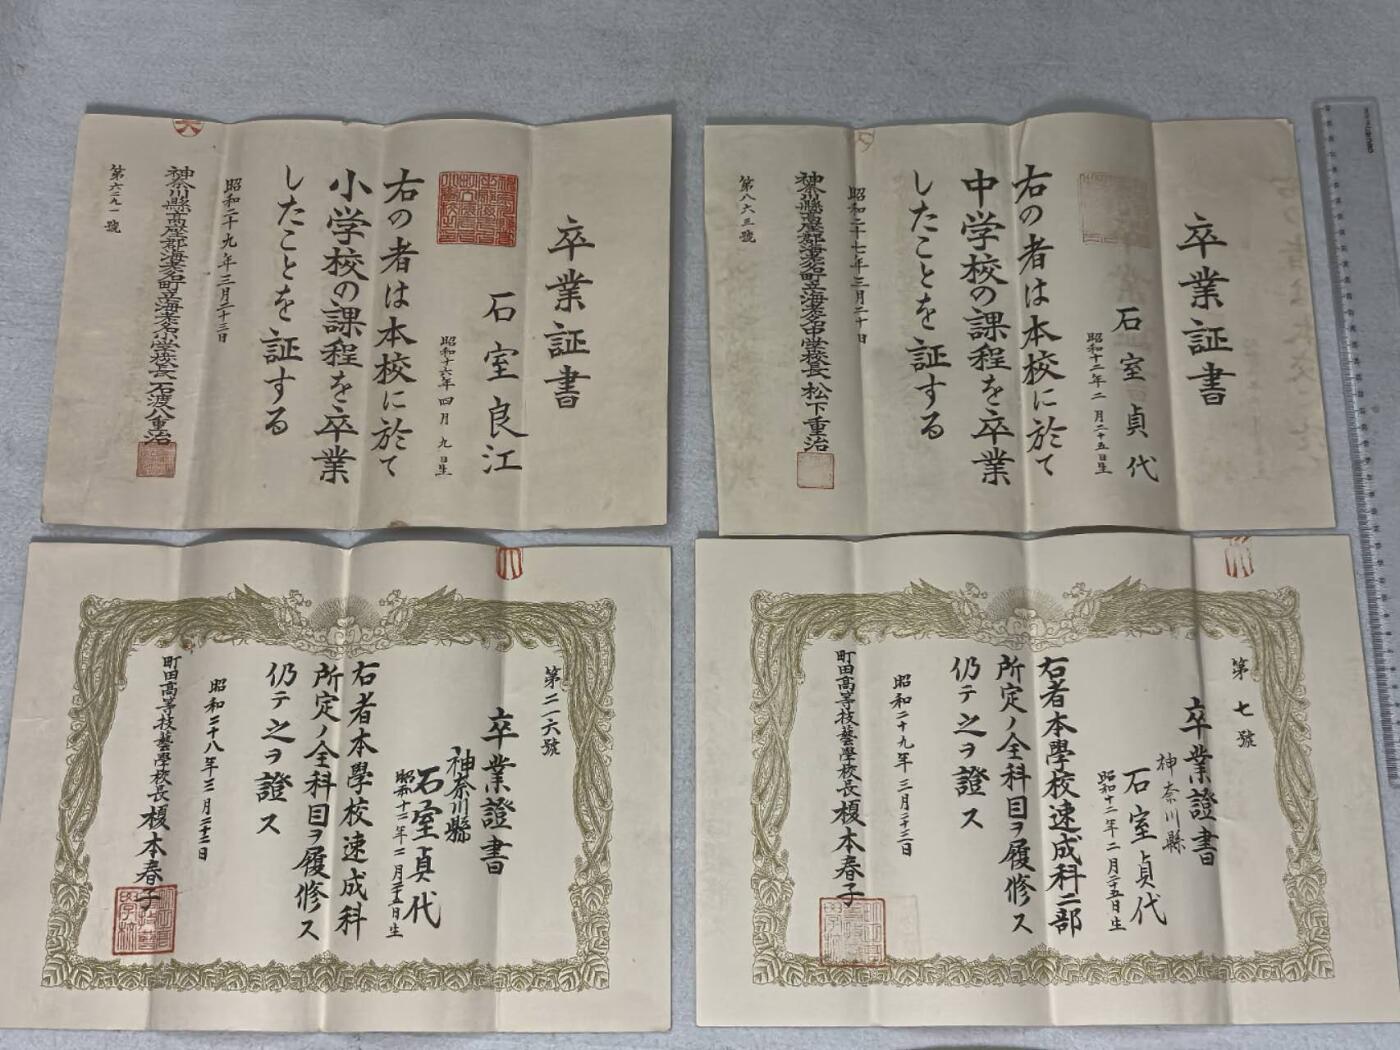 卒業証書
石室良江
昭和十六年四月九日生
右の者は本校に於て
小学校の課程を卒業
したことを証する
昭和二十九年三月二十三日
神奈川縣高座郡海老名町立海老名小学校長石渡八重治
第六二九一號
卒業証書
石室貞代
昭和十二年二月二十五日生
右の者は本校に於て
中学校の課程を卒業
したことを証する
昭和二十七年三月二十日
神奈川縣高座郡海老名町立海老名中学校長松下重治
第八六三號
第二一六號
卒業證書
神奈川縣
石室貞代
昭和十二年二月二十五日生
右者本學校速成科
所定ノ全科目ヲ履修ス
仍テ之ヲ證ス
昭和二十八年三月二十三日
町田高等技藝學校長榎本春子
第七號
卒業證書
神奈川縣
石室貞代
昭和十二年二月二十五日生
右者本學校速成科二部
所定ノ全科目ヲ履修ス
仍テ之ヲ證ス
昭和二十九年三月二十三日
町田高等技藝學校長榎本春子